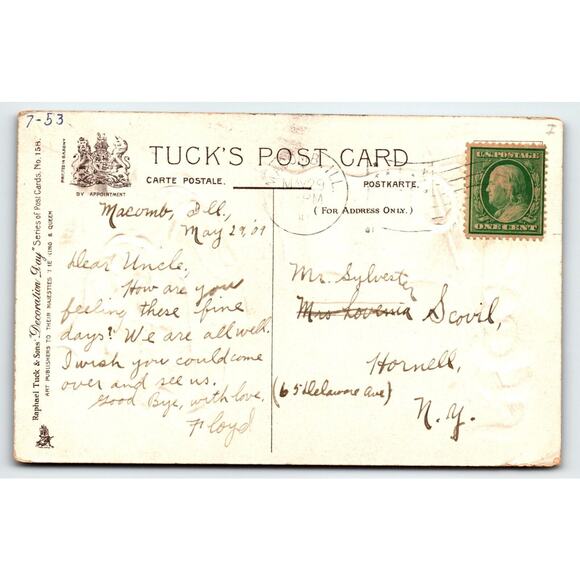 7-53
I
TUCK'S POST CARD
CARTE POSTALE.
POSTKARTE.
( FOR ADDRESS ONLY.)
BY APPOINTMENT
PRINTED IN SAXONY
Raphael Tuck & Sons' "Decoration Day" Series of Post Cards, No. 158.
ART PUBLISHERS TO THEIR MAJESTIES THE KING & QUEEN
MAY 29
PM
ILL.
U.S. POSTAGE
ONE CENT
Macomb, Ill.,
May 29, '09
Dear Uncle,
How are you
feeling these fine
days? We are all well.
I wish you could come
over and see us.
Good Bye, with love,
Floyd
Mr. Sylvester
Mrs Lovenia Scovil,
Hornell,
(65 Delaware Ave)
N.Y.